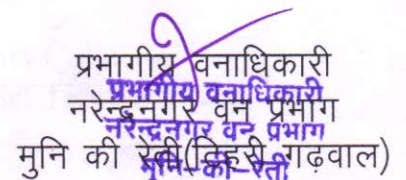 प्रभागीय वनाधिकारी
प्रभागीय वनाधिकारी
नरेन्द्रनगर वन प्रभाग
नरेन्द्रनगर वन प्रभाग
मुनि की रेती(टिहरी गढ़वाल)
मुनि-की-रेती